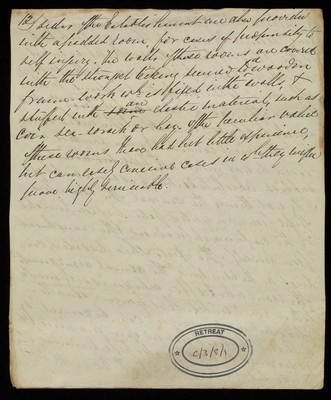 18/ sides of the Establishment are also provided
with a padded room for cases of propensity to
self injury. The walls of these rooms are covered
with the strongest ticking secured to a wooden
frame work wh. is fixed into the walls, &
stuffed with an elastic material, such as
coir sea-wrack or hay. Of the peculiar value
of these rooms I have had but little experience,
but can easily conceive cases in wh. they might
prove highly serviceable.
RETREAT
C/3/5/1